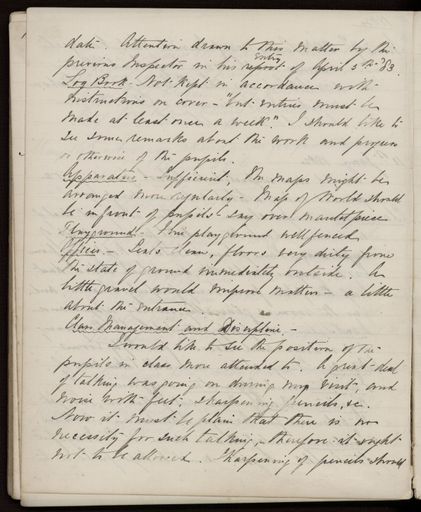 date. Attention drawn to this matter by the
previous Inspector in his report of April 5th '83.
entry
Log Book - Not kept in accordance with
instructions on cover - "but entries must be
made at least once a week". I should like to
see some remarks about the work and progress
or otherwise of the pupils.
Apparatus - Sufficient, the maps might be
arranged more regularly - Map of World should
be in front of pupils say over mantelpiece
Playground - Fine playground well fenced
Offices - Seats clean, floors very dirty from
the state of ground immediately outside. A
little gravel would improve matters - a little
about the entrance.
Class Management and Discipline. -
I would like to see the position of the
pupils in class more attended to. A great deal
of talking was going on during my visit, and
noise with feet, sharpening pencils, &c.
Now it must be plain that there is no
necessity for such talking, - therefore it ought
not to be allowed. Sharpening of pencils should